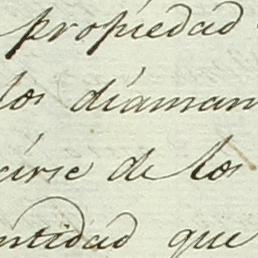 propiedad
los diaman
cirse de los
ntidad que